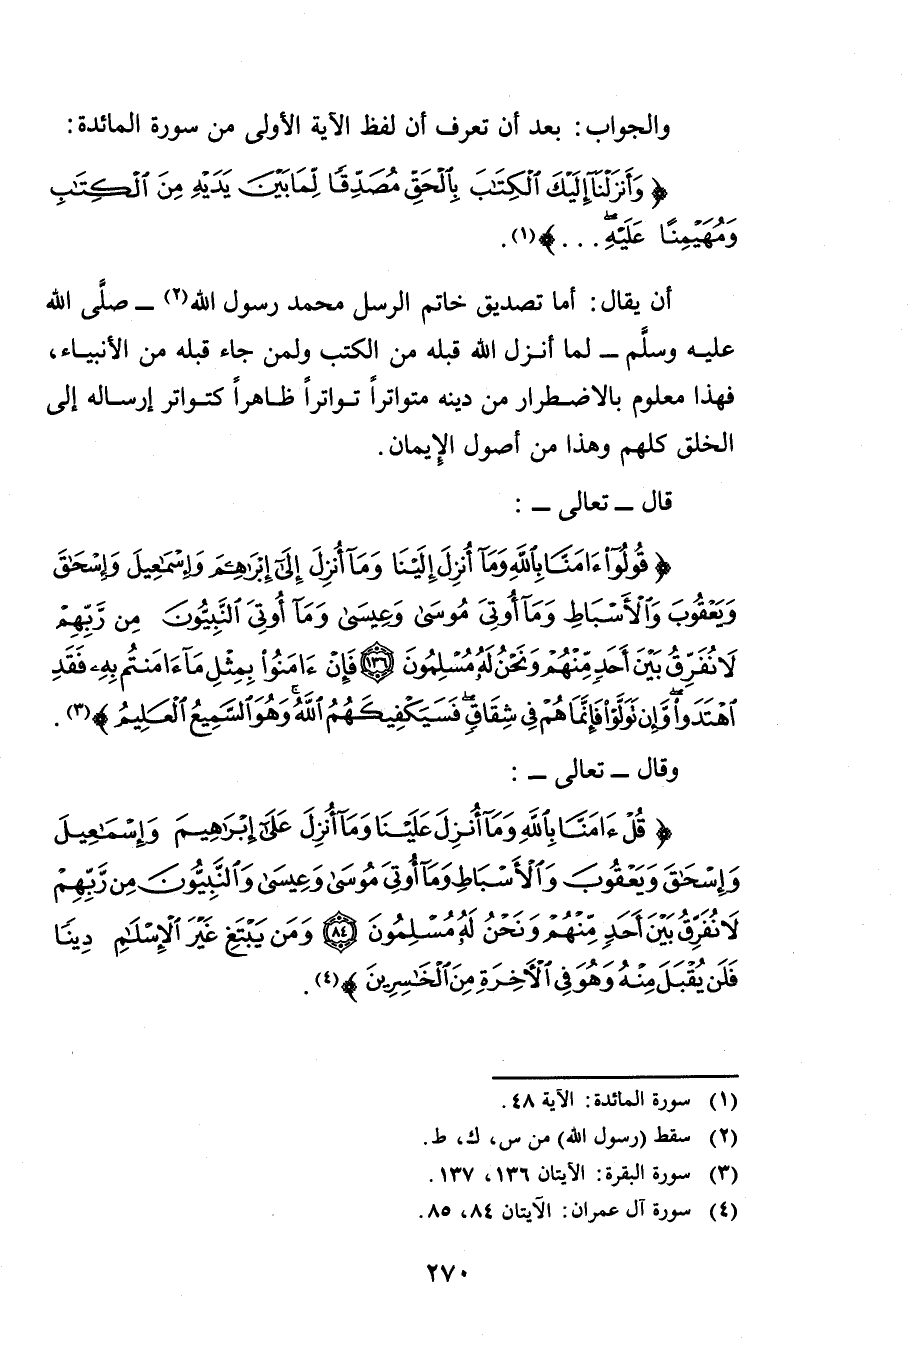 والجواب: بعد أن تعرف أن لفظ الآية الأولى من سورة المائدة:
﴿ وَأَنزَلْنَآ إِلَيْكَ ٱلْكِتَٰبَ بِٱلْحَقِّ مُصَدِّقًا لِّمَا بَيْنَ يَدَيْهِ مِنَ ٱلْكِتَٰبِ
وَمُهَيْمِنًا عَلَيْهِ ۖ . . . ﴾(١).
أن يقال: أما تصديق خاتم الرسل محمد رسول الله(٢) ــ صلَّى الله
عليـه وسلَّم ــ لما أنـزل الله قبله من الكتب ولمن جاء قبله من الأنبيـاء،
فهذا معلوم بالاضـطرار من دينه متواتراً تـواتراً ظـاهراً كتـواتر إرسـاله إلى
الخلق كلهم وهذا من أصول الإيمان.
قال ــ تعالى ــ :
﴿ قُولُوٓا۟ ءَامَنَّا بِٱللَّهِ وَمَآ أُنزِلَ إِلَيْنَا وَمَآ أُنزِلَ إِلَىٰٓ إِبْرَٰهِـۧمَ وَإِسْمَٰعِيلَ وَإِسْحَٰقَ
وَيَعْقُوبَ وَٱلْأَسْبَاطِ وَمَآ أُوتِىَ مُوسَىٰ وَعِيسَىٰ وَمَآ أُوتِىَ ٱلنَّبِيُّونَ مِن رَّبِّهِمْ
لَا نُفَرِّقُ بَيْنَ أَحَدٍ مِّنْهُمْ وَنَحْنُ لَهُۥ مُسْلِمُونَ ١٣٦ فَإِنْ ءَامَنُوا۟ بِمِثْلِ مَآ ءَامَنتُم بِهِۦ فَقَدِ
ٱهْتَدَوا۟ ۖ وَّإِن تَوَلَّوْا۟ فَإِنَّمَا هُمْ فِى شِقَاقٍ ۖ فَسَيَكْفِيكَهُمُ ٱللَّهُ ۚ وَهُوَ ٱلسَّمِيعُ ٱلْعَلِيمُ ﴾(٣).
وقال ــ تعالى ــ :
﴿ قُلْ ءَامَنَّا بِٱللَّهِ وَمَآ أُنزِلَ عَلَيْنَا وَمَآ أُنزِلَ عَلَىٰٓ إِبْرَٰهِيمَ وَإِسْمَٰعِيلَ
وَإِسْحَٰقَ وَيَعْقُوبَ وَٱلْأَسْبَاطِ وَمَآ أُوتِىَ مُوسَىٰ وَعِيسَىٰ وَٱلنَّبِيُّونَ مِن رَّبِّهِمْ
لَا نُفَرِّقُ بَيْنَ أَحَدٍ مِّنْهُمْ وَنَحْنُ لَهُۥ مُسْلِمُونَ ٨٤ وَمَن يَبْتَغِ غَيْرَ ٱلْإِسْلَٰمِ دِينًا
فَلَن يُقْبَلَ مِنْهُ وَهُوَ فِى ٱلْأَخِرَةِ مِنَ ٱلْخَٰسِرِينَ ﴾(٤).
(١) سورة المائدة: الآية ٤٨.
(٢) سقط (رسول الله) من س، ك، ط.
(٣) سورة البقرة: الآيتان ١٣٦، ١٣٧.
(٤) سورة آل عمران: الآيتان ٨٤، ٨٥.
٢٧٠